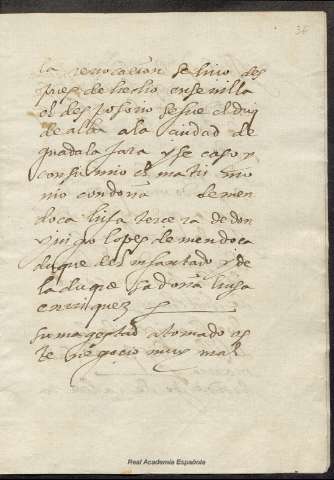 36
la rrevocacion se hiço des
pues de hecho en sevilla
el desposorio se fue el duq
de alba a la ciudad de
guadalajara y se caso y
consumio el matrimo
nio con doña de men
doca hija tercera de don
yñigo lopes de mendoca
duque del infantado y de
la duquesa doña luysa
enrriquez
su magestad a tomado es
te negocio muy mal
Real Academia Española